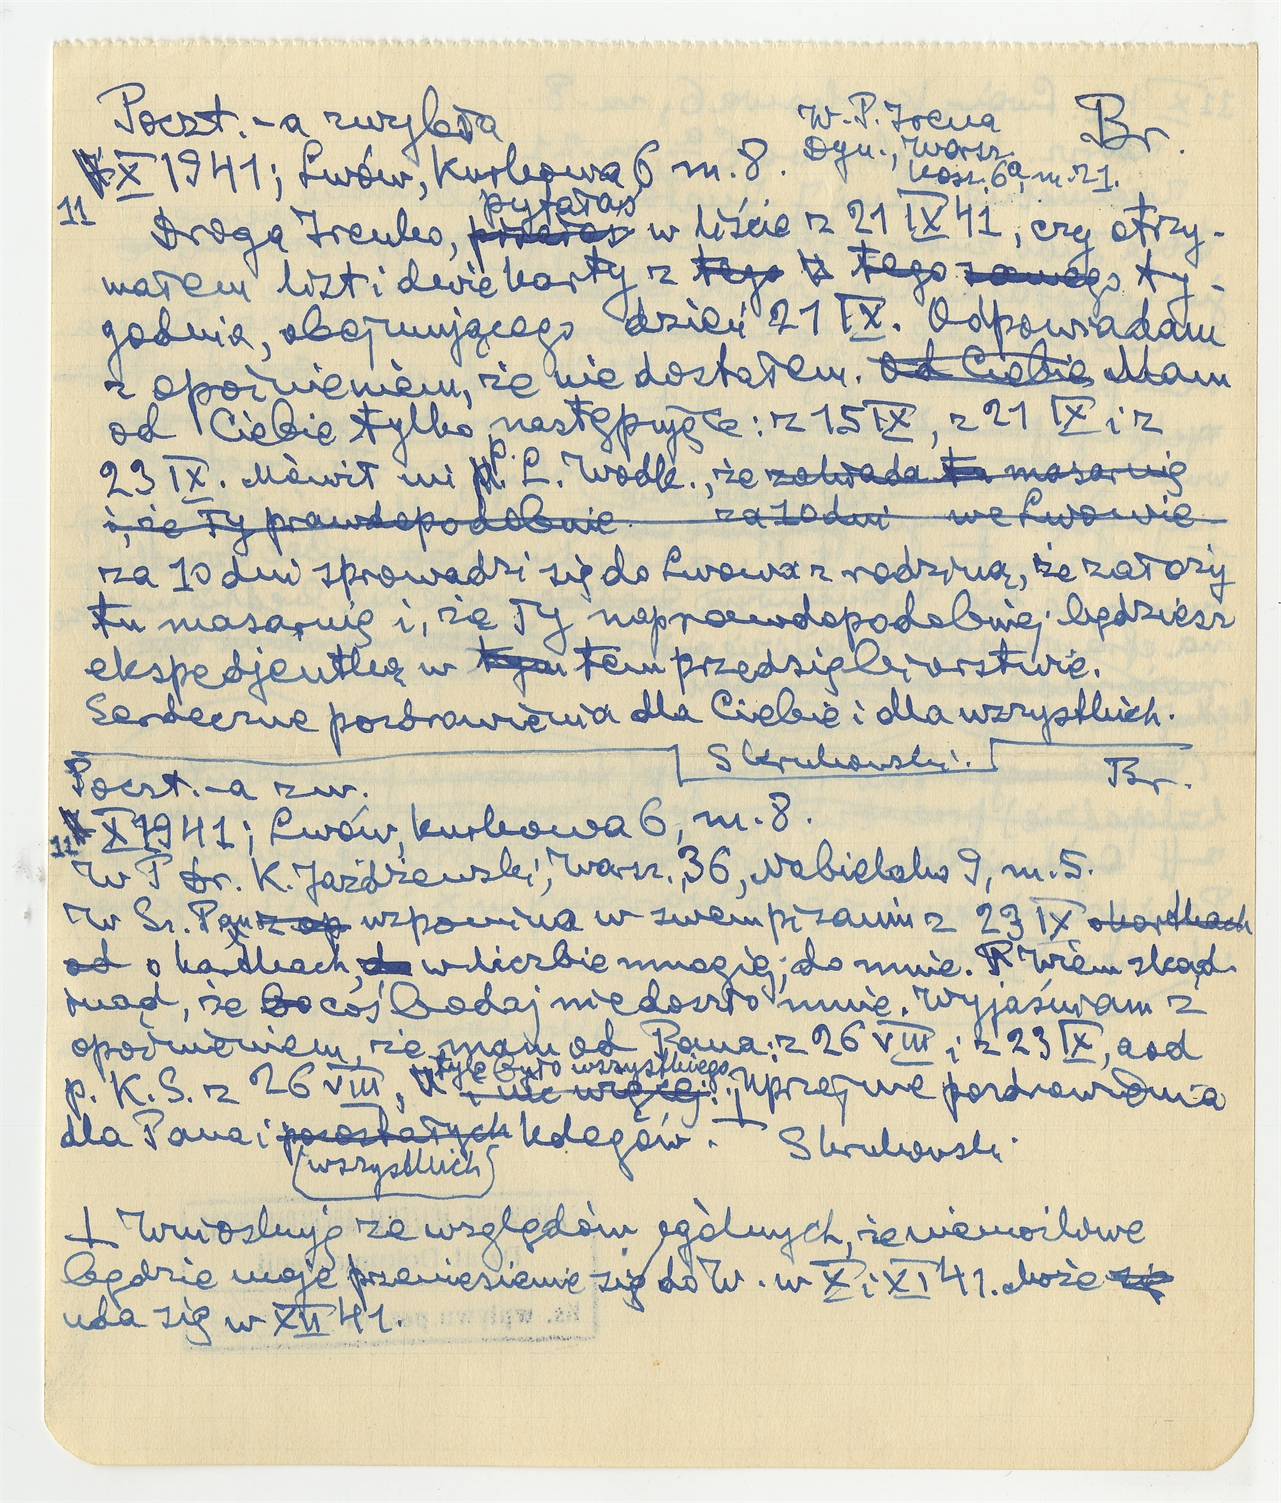 Poczt.-a zwykła
W. P. Irena
Dyn., Warsz.
Kosz. 6a, m. 21.
Br.
X 1941; Lwów, Kurkowa 6 m. 8.
11
pytałaś
Droga Irenko, pisałaś w liście z 21 IX 41, czy otrzy-
małem list i dwie karty z tego tego samego ty-
godnia, obejmującego dzień 21 IX. Odpowiadam
z opóźnieniem, że nie dostałem. Od Ciebie Mam
od Ciebie tylko następujące: z 15 IX, z 21 IX i z
23 IX. Mówił mi p. L. Wodk., że zakłada tu masarnię
i, że Ty prawdopodobnie za 10 dni we Lwowie
za 10 dni sprowadzi się do Lwowa z rodziną, że założy
tu masarnię i, że Ty najprawdopodobniej będziesz
ekspedjentką w tym tem przedsiębiorstwie.
Serdeczne pozdrowienia dla Ciebie i dla wszystkich.
Skrukowski.
Br.
Poczt.-a zw.
11 X 1941; Lwów, Kurkowa 6, m. 8.
W P Dr. K. Jażdżewski, Warsz., 36, Nabielaka 9, m. 5.
W Sz. Pan wspomina w swem pisaniu z 23 IX o kartkach
od o kartkach, do w liczbie mnogiej; do mnie. Wiem skąd
inąd, że bo coś bodaj nie doszło mnie. Wyjaśniam z
opóźnieniem, że mam od Pana: z 26 VIII i z 23 IX, a od
tyle było wszystkiego
p. K. S. z 26 VIII, i nic więcej. ⊥ Uprzejme pozdrowienia
dla Pana i pozostałych kolegów. Skrukowski.
(wszystkich)
⊥ Wnioskuję ze względów ogólnych, że niemożliwe
będzie moje przeniesienie się do W. w X i XI 41. Może się
uda się w XII 41.